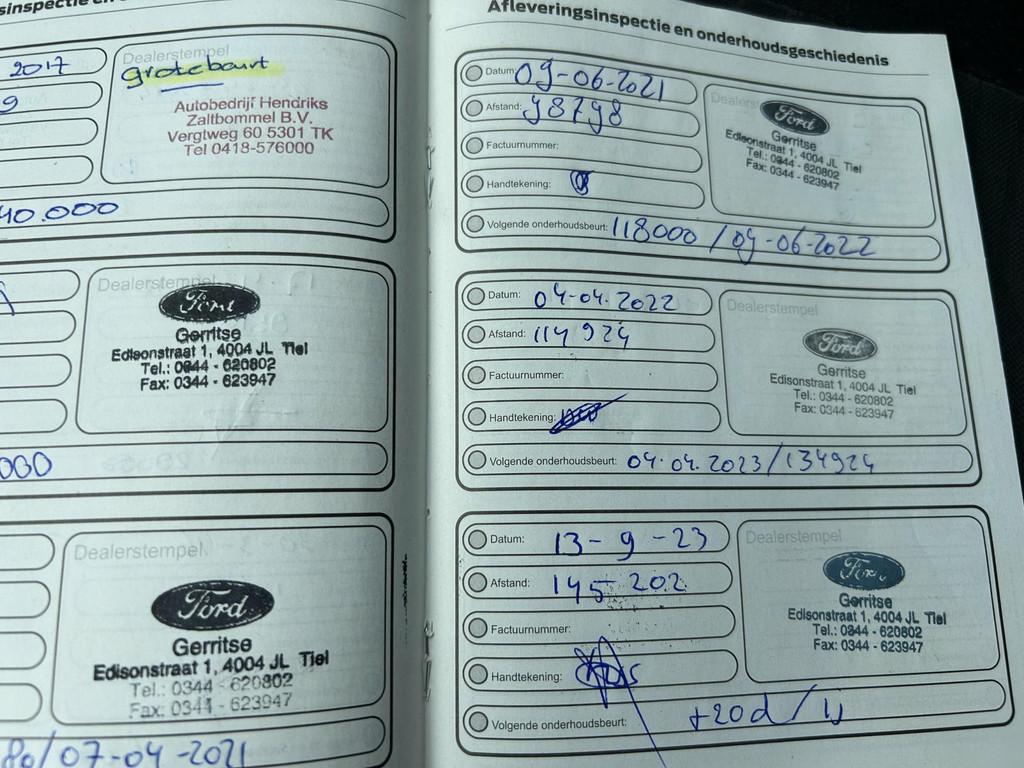 2017
Dealerstempel
grote beurt
Autobedrijf Hendriks
Zaltbommel B.V.
Vergtweg 60 5301 TK
Tel 0418-576000
40.000
Dealerstempel
Ford
Gerritse
Edisonstraat 1, 4004 JL Tiel
Tel.: 0344 - 620802
Fax: 0344 - 623947
000
Dealerstempel
Ford
Gerritse
Edisonstraat 1, 4004 JL Tiel
Tel.: 0344 - 620802
Fax: 0344 - 623947
/07-04-2021
Afleveringsinspectie en onderhoudsgeschiedenis
Datum: 09-06-2021
Afstand: 98798
Factuurnummer:
Handtekening:
Volgende onderhoudsbeurt: 118000 / 09-06-2022
Ford
Gerritse
Edisonstraat 1, 4004 JL Tiel
Tel.: 0344 - 620802
Fax: 0344 - 623947
Datum: 04-04.2022
Afstand: 114924
Factuurnummer:
Handtekening:
Volgende onderhoudsbeurt: 04.04.2023/134924
Dealerstempel
Ford
Gerritse
Edisonstraat 1, 4004 JL Tiel
Tel.: 0344 - 620802
Fax: 0344 - 623947
Datum: 13-9-23
Afstand: 145 202
Factuurnummer:
Handtekening:
Volgende onderhoudsbeurt: +20d / 1J
Dealerstempel
Ford
Gerritse
Edisonstraat 1, 4004 JL Tiel
Tel.: 0344 - 620802
Fax: 0344 - 623947